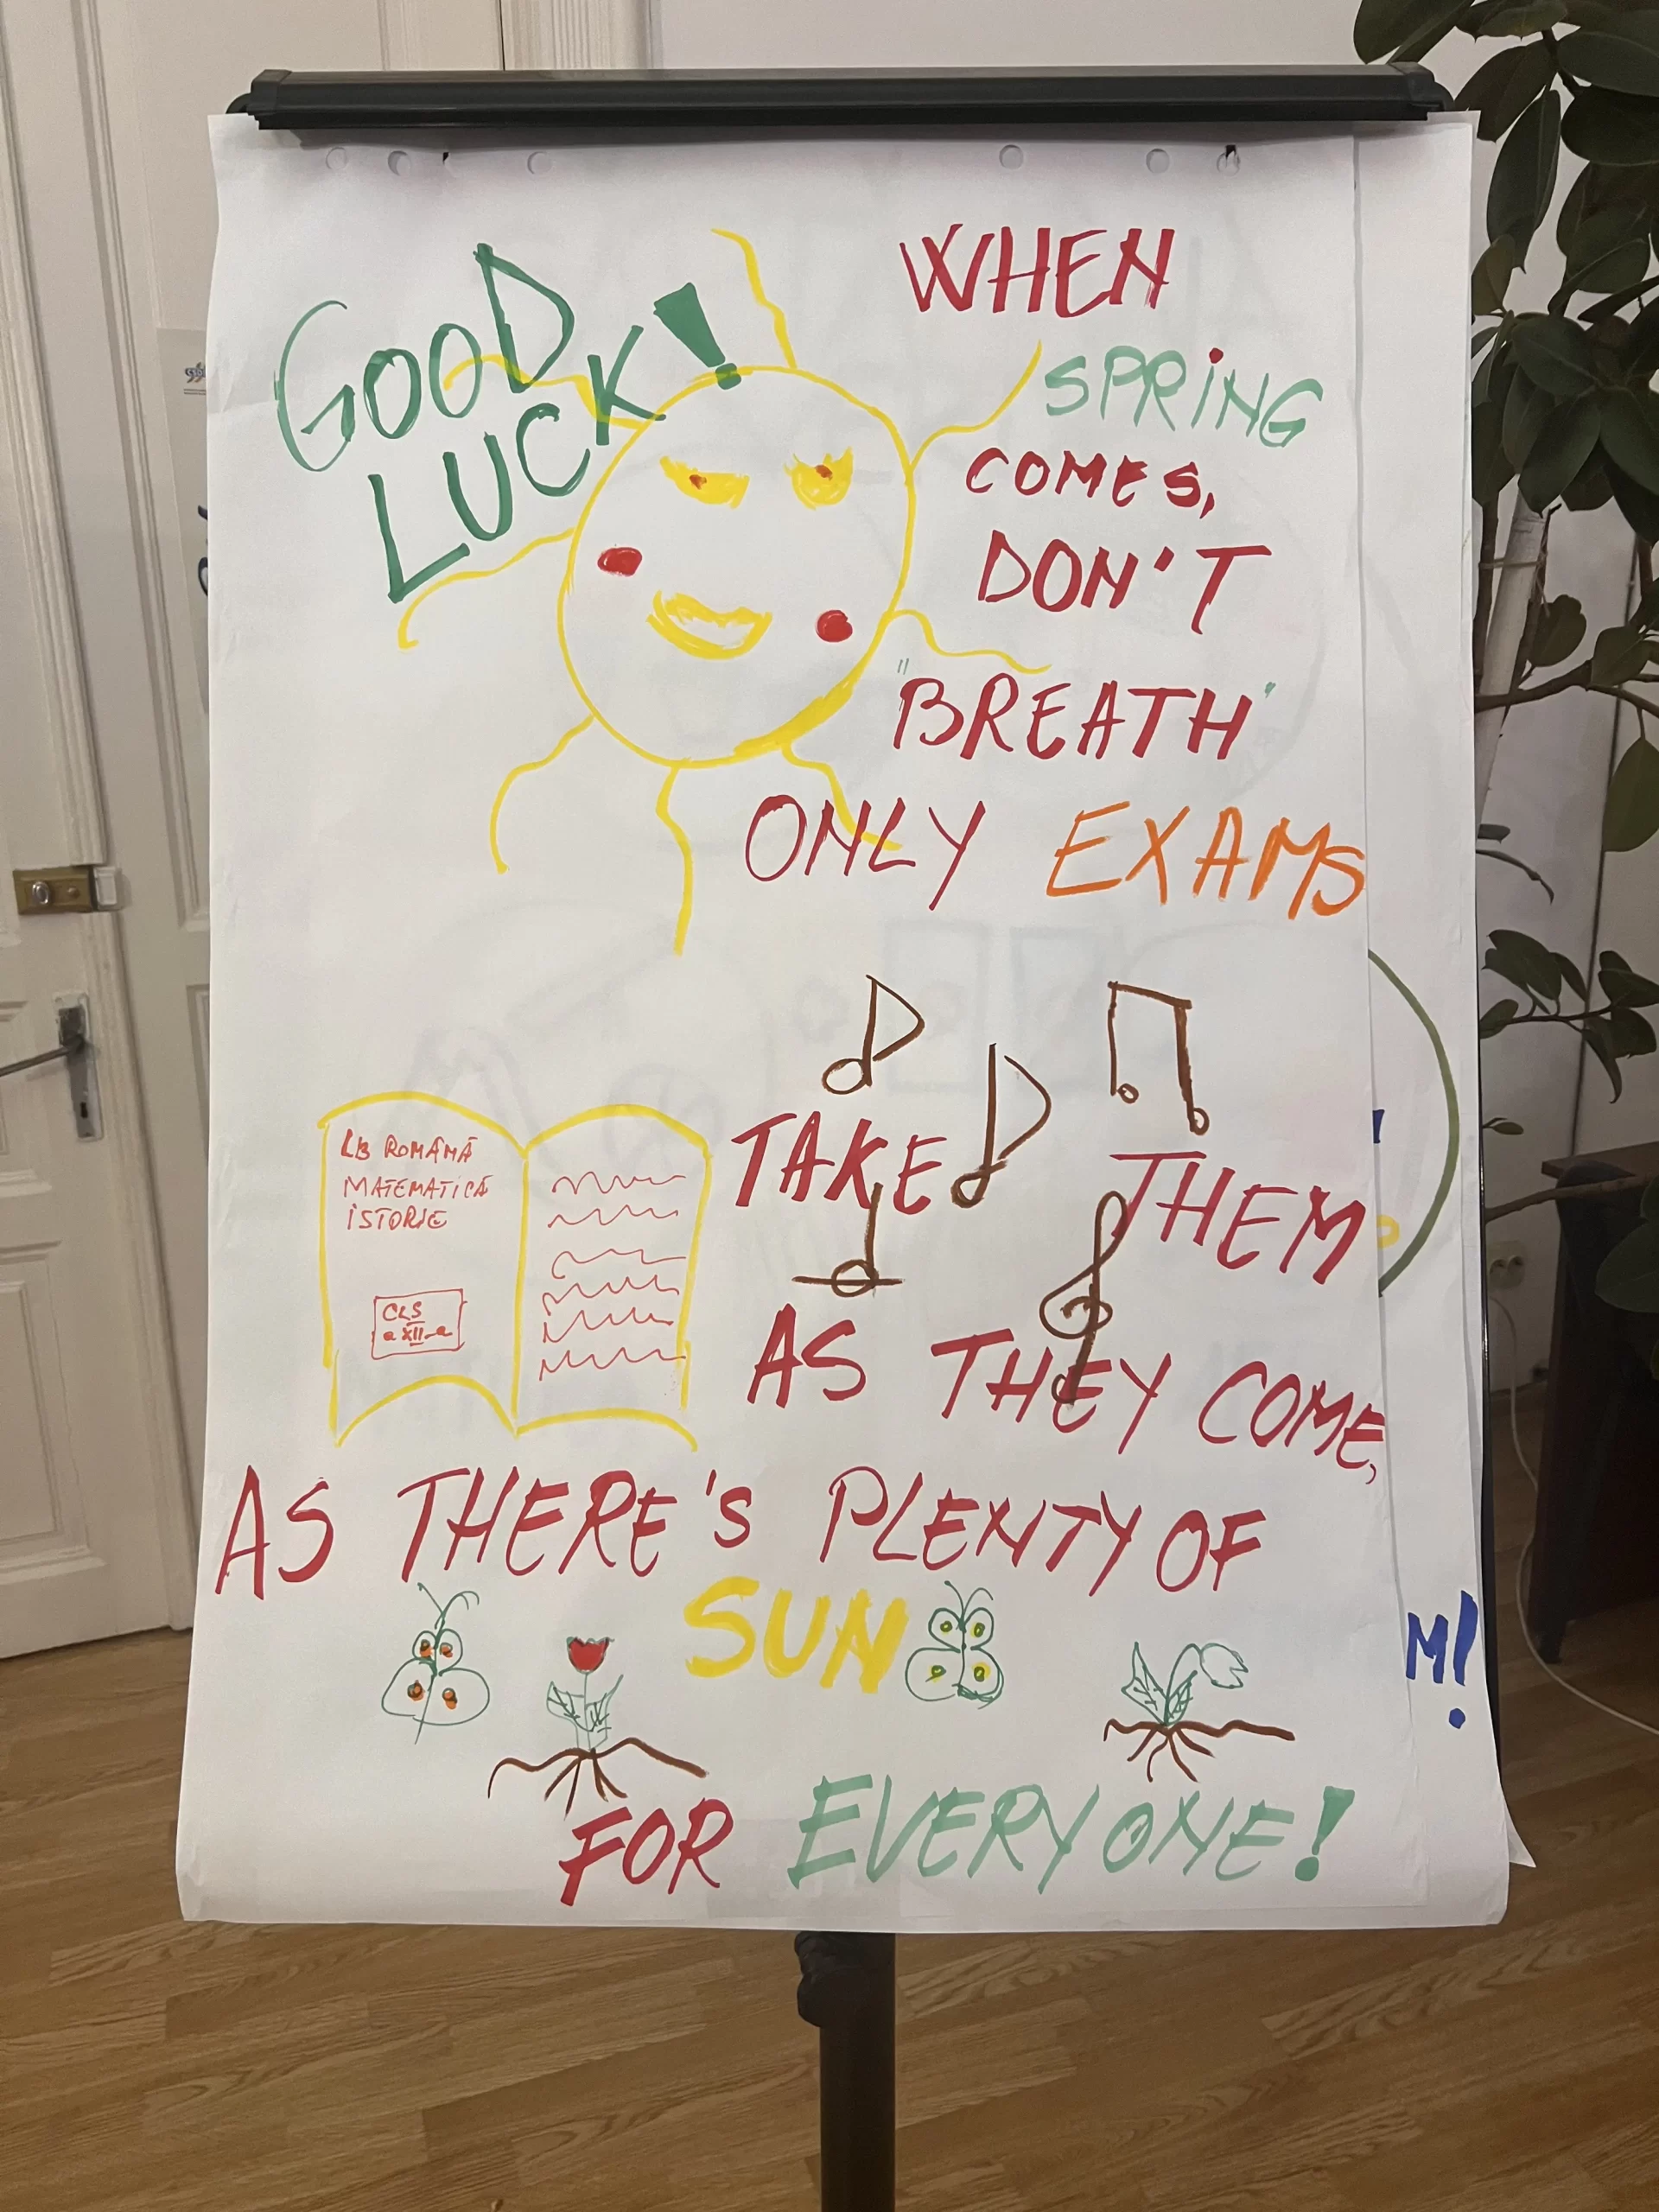 GOOD
LUCK!
WHEN
SPRING
COMES,
DON'T
"BREATH"
ONLY EXAMS
TAKE THEM
AS THEY COME,
LB ROMÂNĂ
MATEMATICĂ
ISTORIE
CLS
a XII-a
AS THERE'S PLENTY OF
SUN
FOR EVERYONE!
M!